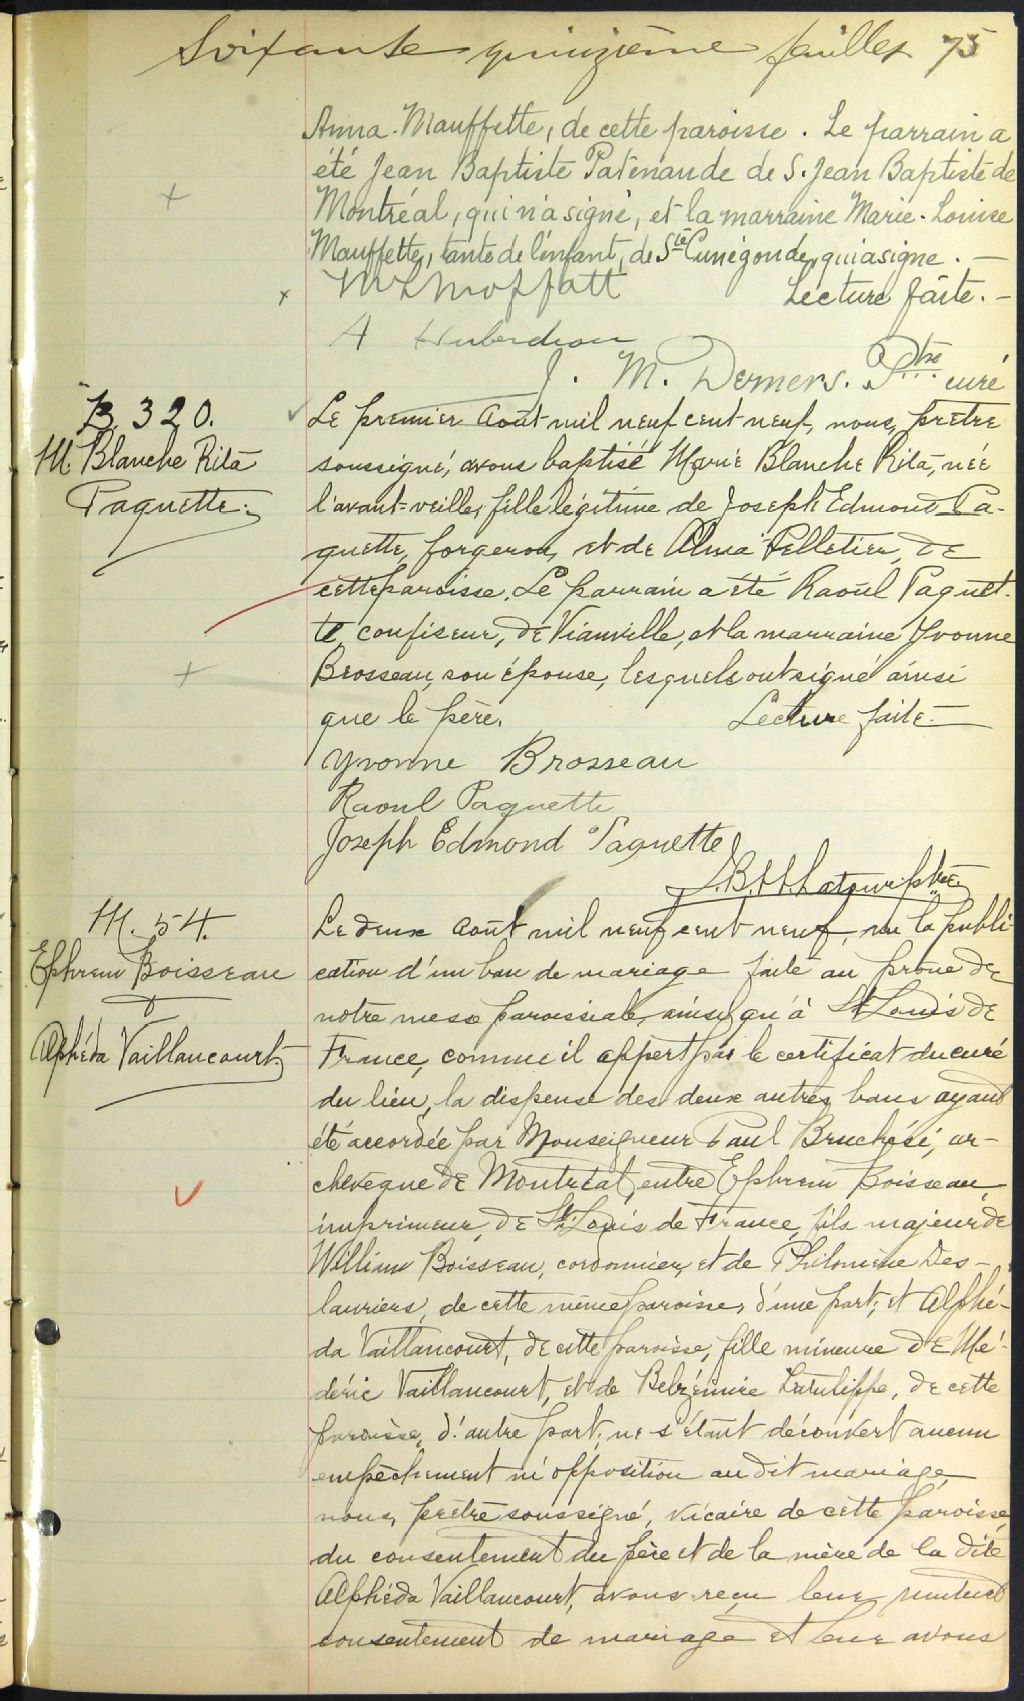 Soixante quinzième feuillet 75
Anna Mauffette, de cette paroisse. Le parrain a
été Jean Baptiste Patenaude de S. Jean Baptiste de
Montréal, qui n'a signé, et la marraine Marie-Louise
Mauffette, tante de l'enfant, de Ste Cunégonde, qui a signé. —
M L Moffatt Lecture faite. —
A Huberdeau
J. M. Demers. Ptre curé
B. 320.
M. Blanche Rita
Paquette.
Le premier Août mil neuf cent neuf, nous, prêtre
soussigné, avons baptisé Marie Blanche Rita, née
l'avant-veille, fille légitime de Joseph Edmond Pa-
quette, forgeron, et de Alma Pelletier, de
cette paroisse. Le parrain a été Raoul Paquet-
te, confiseur, de Viauville, et la marraine Yvonne
Brosseau, son épouse, lesquels ont signé ainsi
que le père. Lecture faite —
Yvonne Brosseau
Raoul Paquette
Joseph Edmond Paquette
ptre.
M. 54.
Ephrem Boisseau
&
Alphéda Vaillancourt
Le deux Août mil neuf cent neuf, vu la publi-
cation d'un ban de mariage faite au prône de
notre messe paroissiale, ainsi qu'à St Louis de
France, comme il appert par le certificat du curé
du lieu, la dispense des deux autres bans ayant
été accordée par Monseigneur Paul Bruchési, ar-
chevêque de Montréal, entre Ephrem Boisseau,
imprimeur, de St. Louis de France, fils majeur de
William Boisseau, cordonnier, et de Philomène Des-
lauriers, de cette même paroisse, d'une part; et Alphé-
da Vaillancourt, de cette paroisse, fille mineure de Mé-
déric Vaillancourt, et de Belzémire Latulippe, de cette
paroisse, d'autre part; ne s'étant découvert aucun
empêchement ni opposition au dit mariage,
nous, prêtre soussigné, vicaire de cette paroisse,
du consentement du père et de la mère de la dite
Alphéda Vaillancourt, avons reçu leur mutuel
consentement de mariage et leur avons